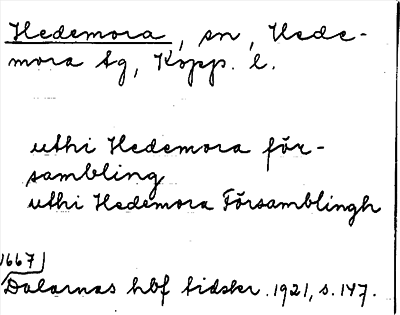 Hedemora, sn, Hede-
mora tg, Kopp. l.
uthi Hedemora för-
sambling
uthi Hedemora Församblingh
1667
Dalarnas hbf tidskr. 1921, s. 147.